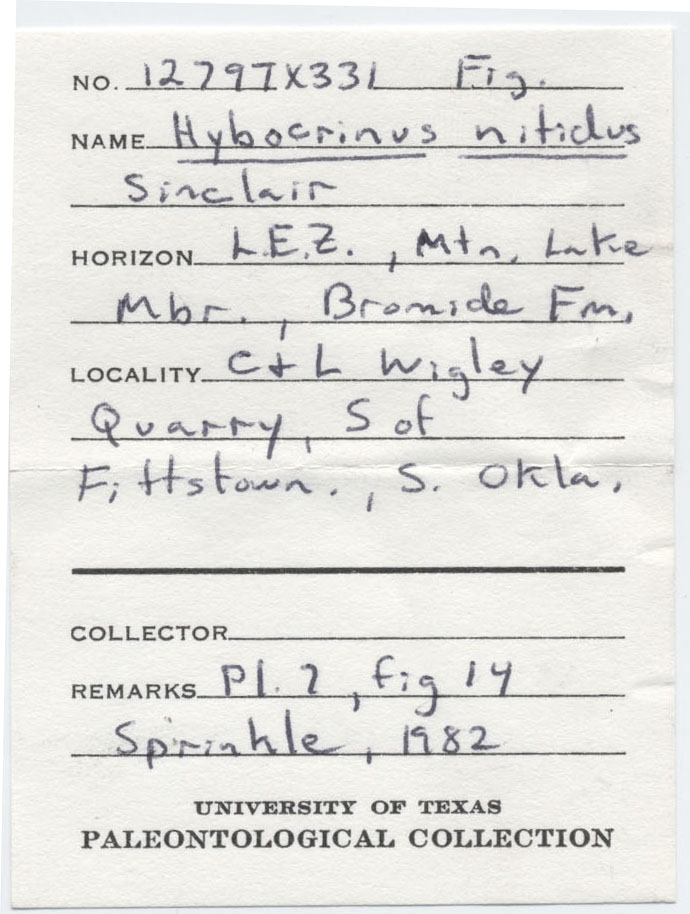 NO. 12797X331 Fig.
NAME Hybocrinus nitidus
Sinclair
HORIZON L.E.Z., Mtn. Lake
Mbr., Bromide Fm.
LOCALITY C+L Wigley
Quarry, S of
Fittstown., S. Okla.
COLLECTOR
REMARKS Pl. 7, fig 14
Sprinkle, 1982
UNIVERSITY OF TEXAS
PALEONTOLOGICAL COLLECTION